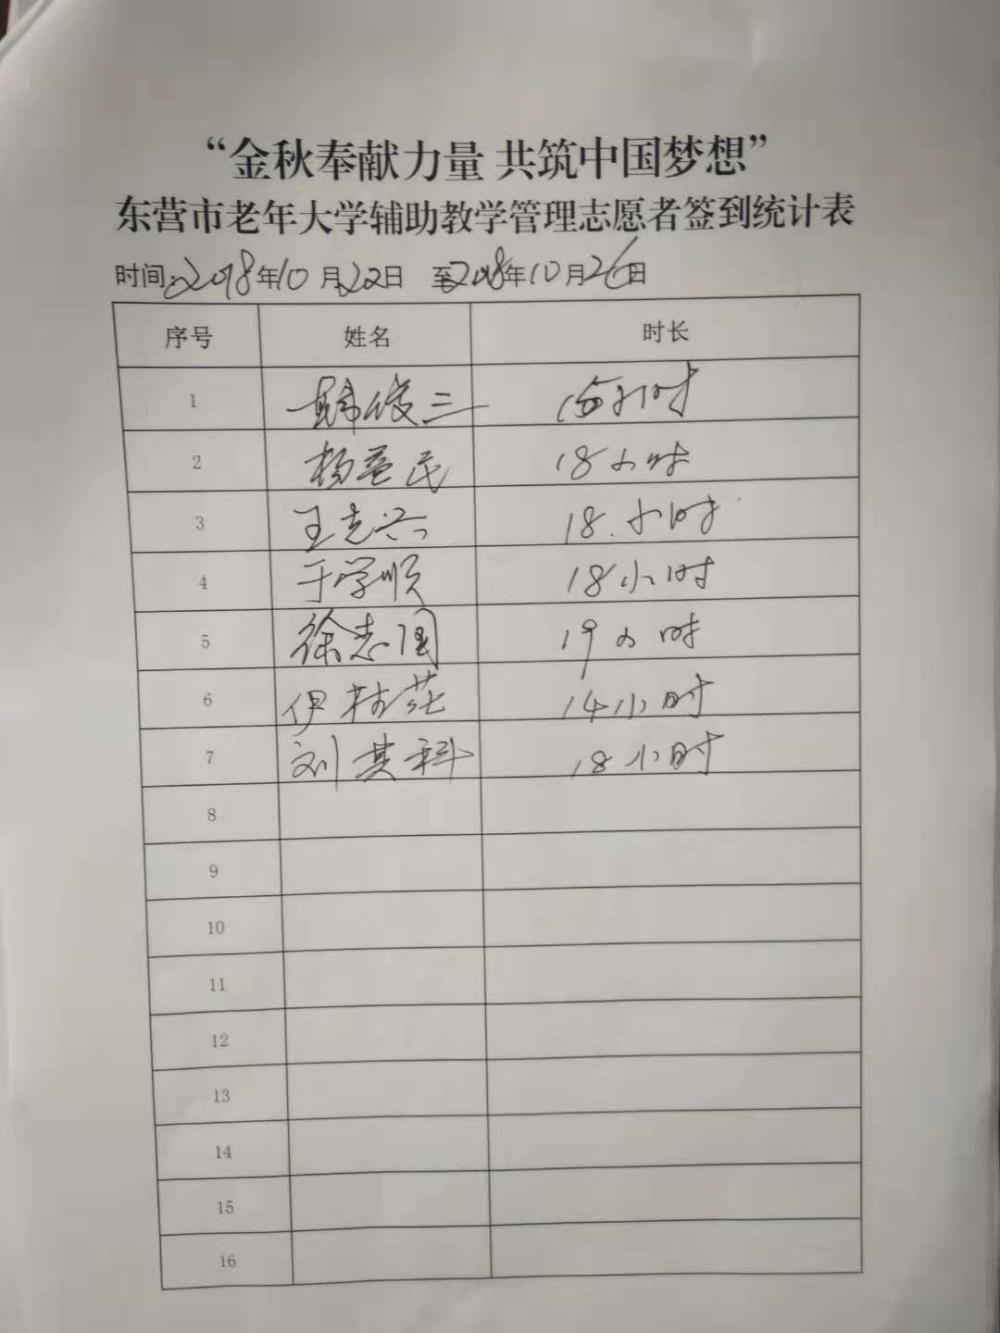 “金秋奉献力量 共筑中国梦想”
东营市老年大学辅助教学管理志愿者签到统计表
时间:2018年10月22日 至2018年10月26日
序号 姓名 时长
1 韩俊三 小时
2 杨益民 18小时
3 王志兴 18.小时
4 于学顺 18小时
5 徐志国 19小时
6 伊树 14小时
7 刘其科 18小时
8
9
10
11
12
13
14
15
16